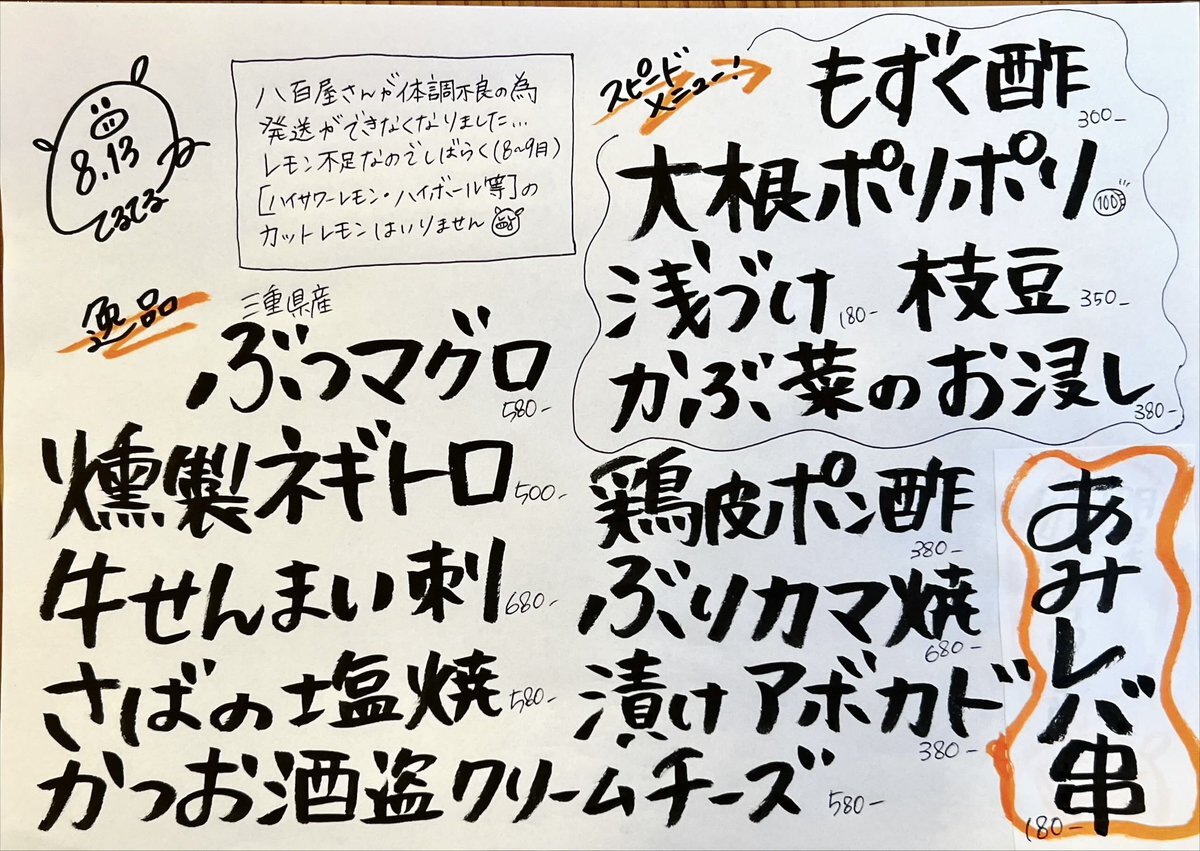 8.13
てるてる
八百屋さんが体調不良の為
発送ができなくなりました…
レモン不足なのでしばらく(8〜9月)
[ハイサワーレモン・ハイボール等]の
カットレモンはいりません
スピード
メニュー!
もずく酢 300-
大根ポリポリ 100円
浅づけ 180- 枝豆 350-
かぶ菜のお浸し 380-
逸品
三重県産
ぶつマグロ 580-
燻製ネギトロ 500-
牛せんまい刺 680-
さばの塩焼 580-
かつお酒盗クリームチーズ 580-
鶏皮ポン酢 380-
ぶりカマ焼 680-
漬けアボカド 380-
あみレバ串 180-